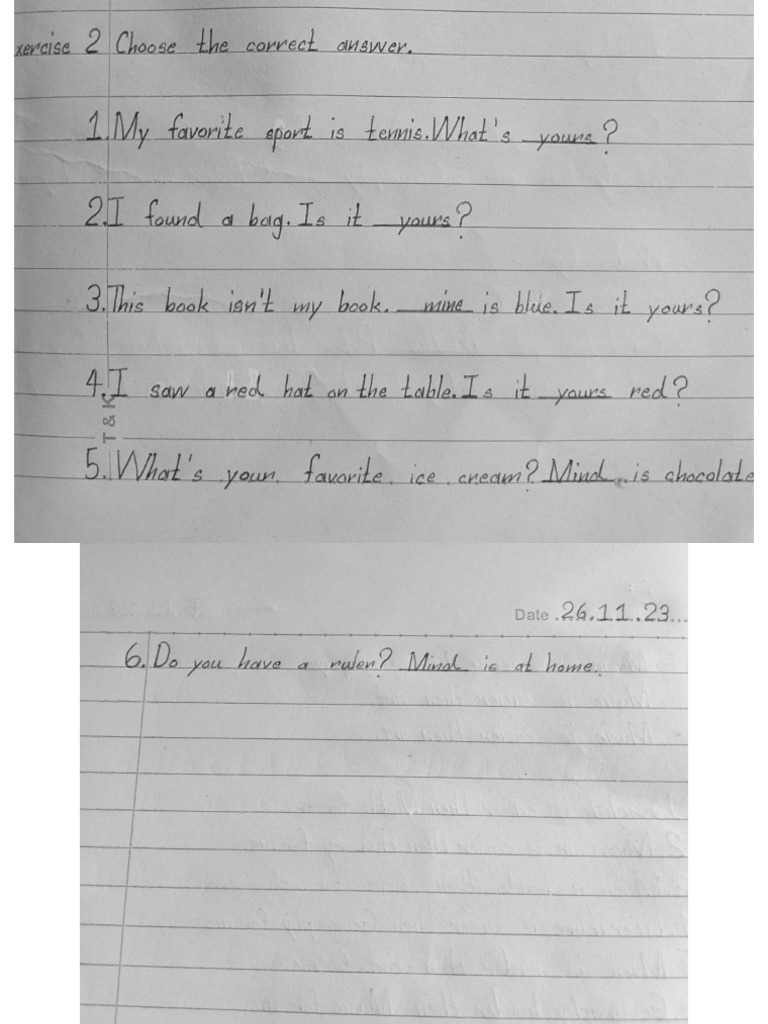 xercise 2 Choose the correct answer.
1. My favorite sport is tennis. What's yours?
2. I found a bag. Is it yours?
3. This book isn't my book. mine is blue. Is it yours?
4. I saw a red hat on the table. Is it yours red?
T & K
5. What's your favorite ice cream? Mind is chocolate
Date 26.11.23
6. Do you have a ruler? Mind is at home.